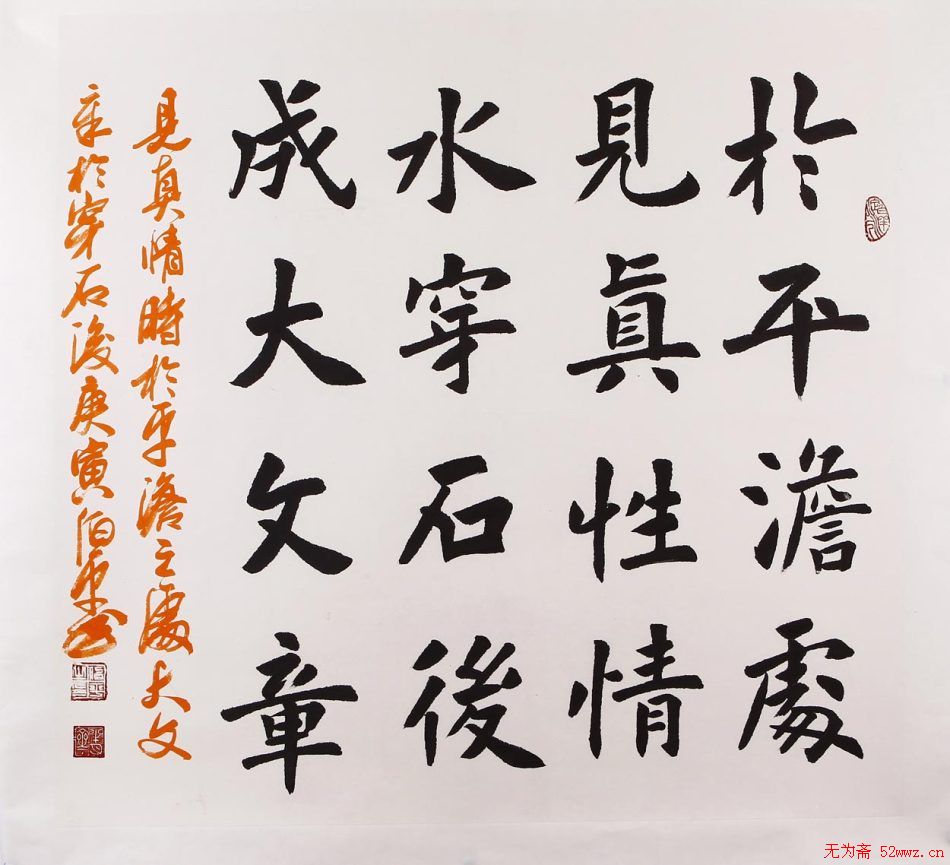 於平澹處
見真性情
水穿石後
成大文章
見真情時於平澹之處大文
章於穿石後庚寅伯平书
无为斋 52wwz.cn